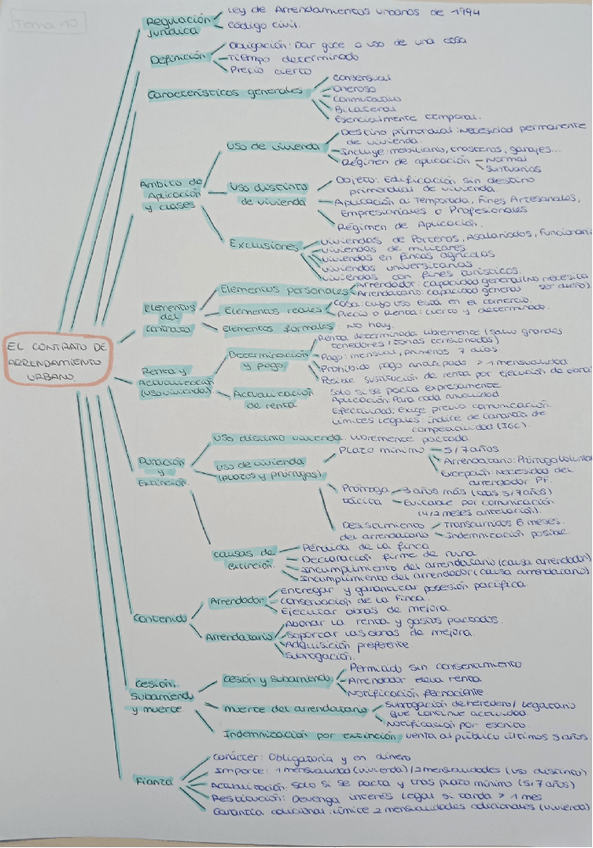 Tema 10
EL CONTRATO DE
ARRENDAMIENTO
URBANO
Regulación
Jurídica
Ley de Arrendamientos Urbanos de 1994
Código civil.
Definición
Obligación: Dar goce o uso de una cosa
Tiempo determinado
Precio cierto
Características generales
Consensual
Oneroso
Conmutativo
Bilateral
Esencialmente temporal.
Ámbito de
Aplicación
y clases
Uso de vivienda
Destino primordial: Necesidad permanente
de vivienda.
Incluye: mobiliario, trasteros, garajes...
Régimen de aplicación
Normal
Suntuarias
Uso distinto
de vivienda
Objeto: Edificación sin destino
primordial de vivienda
Aplicación a Temporada, Fines Artesanales,
Empresariales o Profesionales
Régimen de Aplicación.
Exclusiones
Viviendas de Porteros, Asalariados, Funcionari
Viviendas de militares
Viviendas en fincas agrícolas
Viviendas universitarias
Viviendas con fines turísticos.
Elementos
del
contrato
Elementos personales
Arrendador: capacidad general (no necesita
ser dueño)
Arrendatario: capacidad general
Elementos reales
Cosa: cuyo uso está en el comercio.
Precio o Renta: cierto y determinado.
Elementos formales
No hay.
Renta y
Actualización
(uso vivienda)
Determinación
y pago
Renta determinada libremente (salvo grandes
tenedores / zonas tensionadas)
Pago: mensual, primeros 7 días
Prohibido pago anticipado > 1 mensualidad
Posible sustitución de renta por ejecución de obras
Actualización
de renta
Solo si se pacta expresamente
Aplicación: Para cada anualidad
Efectividad: Exige previa comunicación
Límites legales: Índice de Garantía de
competitividad (IGC).
Duración
y
Extinción
Uso distinto vivienda: libremente pactada
Uso de vivienda
(plazos y prórrogas)
Plazo mínimo
5/7 años
Arrendatario: Prórroga Volunta
Excepción: Necesidad del
arrendador PF.
Prórroga
tácita
3 años más (tras 5/7 años)
Evitable por comunicación
(4/2 meses antelación).
Desistimiento
del arrendatario
Transcurridos 6 meses.
Indemnización posible
Causas de
extinción
Pérdida de la finca
Declaración firme de ruina
Incumplimiento del arrendatario (causa arrendador)
Incumplimiento del arrendador (causa arrendatario)
Contenido
Arrendador
Entregar y garantizar posesión pacífica
Conservación de la finca.
Ejecutar obras de mejora.
Arrendatario
Abonar la renta y gastos pactados.
Soportar las obras de mejora.
Adquisición preferente
Subrogación.
Cesión,
Subarriendo
y muerte
Cesión y subarriendo
Permitido sin consentimiento
Arrendador eleva renta
Notificación fehaciente
Muerte del arrendatario
Subrogación del heredero / legatario
que continúe actividad
Notificación por escrito.
Indemnización por extinción
Venta al público últimos 5 años.
Fianza
Carácter: Obligatoria y en dinero
Importe: 1 mensualidad (vivienda) / 2 mensualidades (uso distinto)
Actualización: Solo si se pacta y tras plazo mínimo (5/7 años)
Restitución: Devenga interés legal si tarda > 1 mes
Garantía adicional: Límite 2 mensualidades adicionales (vivienda)